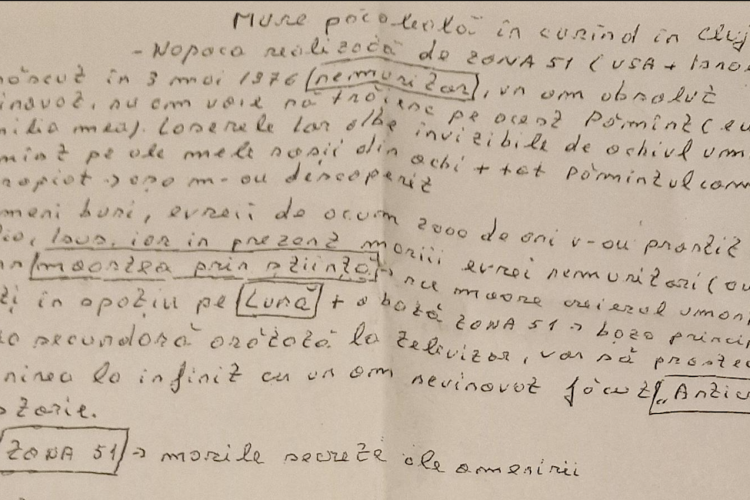 Mare păcăleală în curînd în Cluj
- Napoca realizată de ZONA 51 (USA +
născut în 3 mai 1976 (nemuritor), un om absolut
nevinovat, nu am voie să trăiesc pe acest Pămînt (eu
familia mea). Laserele lor albe invizibile de ochiul
pe ale mele roșii din ochi + tot Pămîntul
→ așa m-au descoperit
oameni buni, evreii de acum 2000 de ani v-au prostit
Isus, iar in prezent marii evrei nemuritori (au
moartea prin știință → nu moare creierul
în spațiu pe Lună + o bază ZONA 51 → baza
secundară arătată la televizor, vor să
la infinit cu un om nevinovat făcut "Antic
ZONA 51 → marile secrete ale omenirii